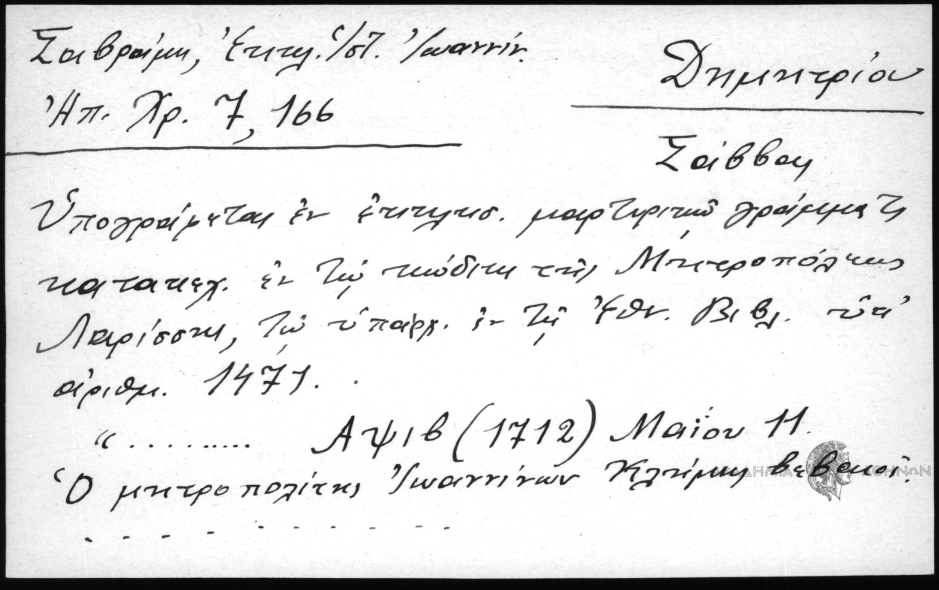 Σαβράμη, Ἐκκλ. Ἱστ. Ἰωαννίν.
Ἠπ. Χρ. 7, 166
Δημητρίου
Σάββας
Ὑπογράφεται ἐν ἐκκλησ. μαρτυρικῷ γράμματι
κατακεχ. ἐν τῷ κώδικι τῆς Μητροπόλεως
Λαρίσσης, τῷ ὑπάρχ. ἐν τῇ Ἐθν. Βιβλ. ὑπ'
ἀριθμ. 1471.
“......... ΑΨΙΒ (1712) Μαΐου 11.
Ὁ μητροπολίτης Ἰωαννίνων Κλήμης βεβαιοῖ.
. . . . . . . . . . . .